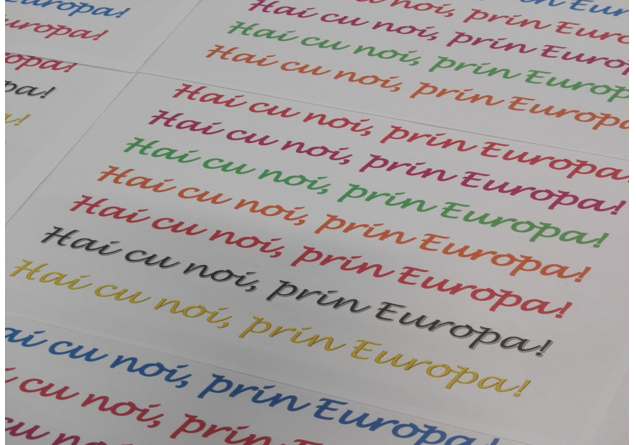 Europa!
Europa!
Europa!
opa!
pa!
a!
prin Euro
Hai cu noi, prin Euro
Hai cu noi, prin Europ
Hai cu noi, prin Europ
Hai cu noi, prin Europa
Hai cu noi, prin Europa!
Hai cu noi, prin Europa!
Hai cu noi, prin Europa!
Hai cu noi, prin Europa!
Hai cu noi, prin Europa!
Hai cu noi, prin Europa!
Hai cu noi, prin Europa!
ai cu noi, prin Europa!
i cu noi, prin Europa!
cu noi, prin